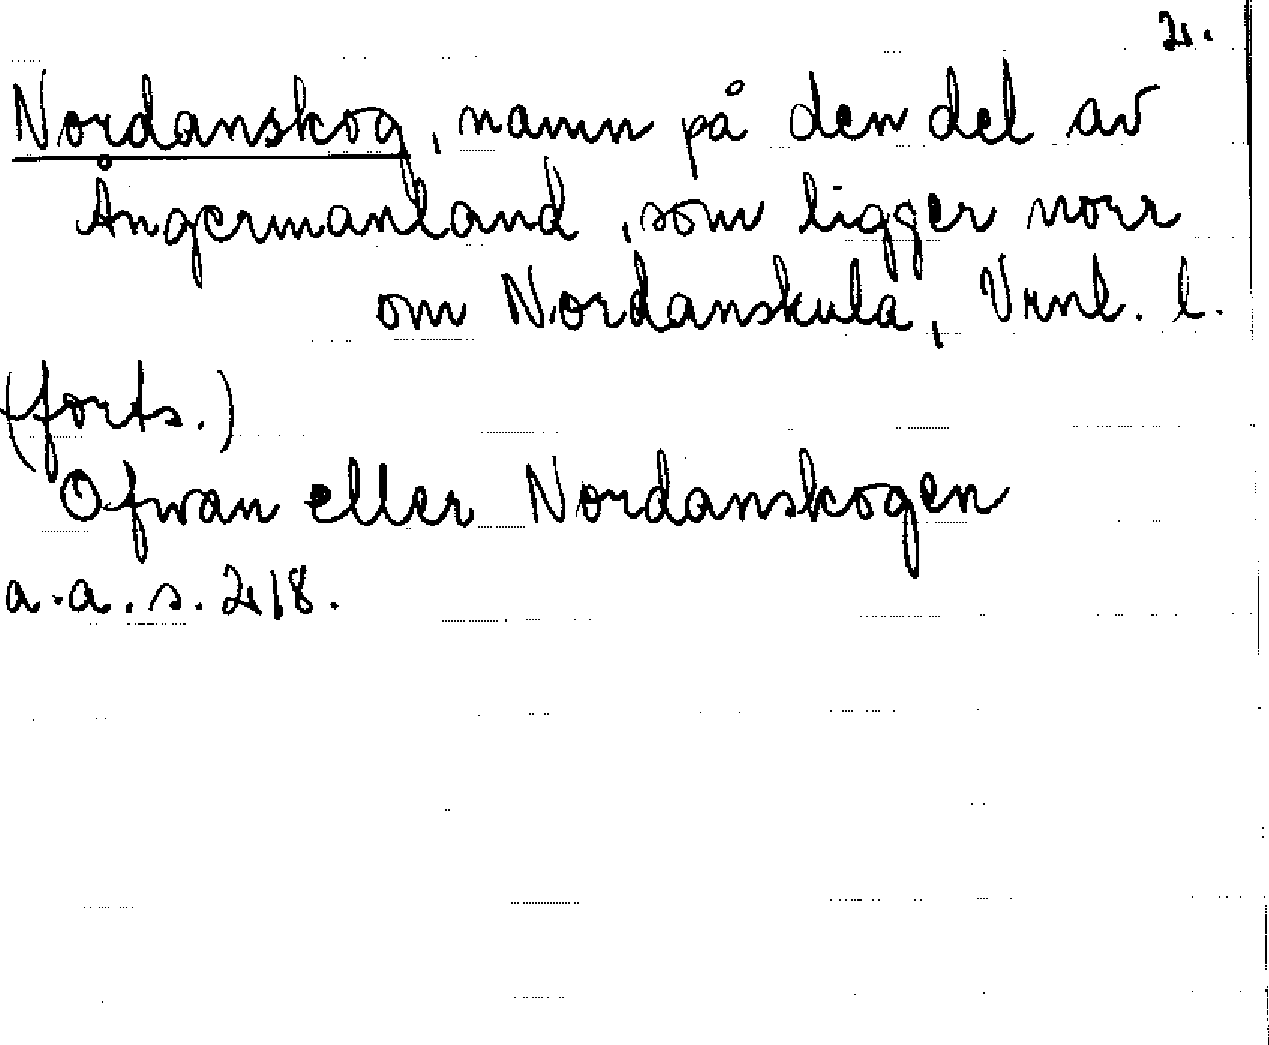 2.
Nordanskog, namn på den del av
Ångermanland, som ligger norr
om Nordanskula, Vrnl. l.
(forts.)
Ofwan eller Nordanskogen
a.a. s. 218.